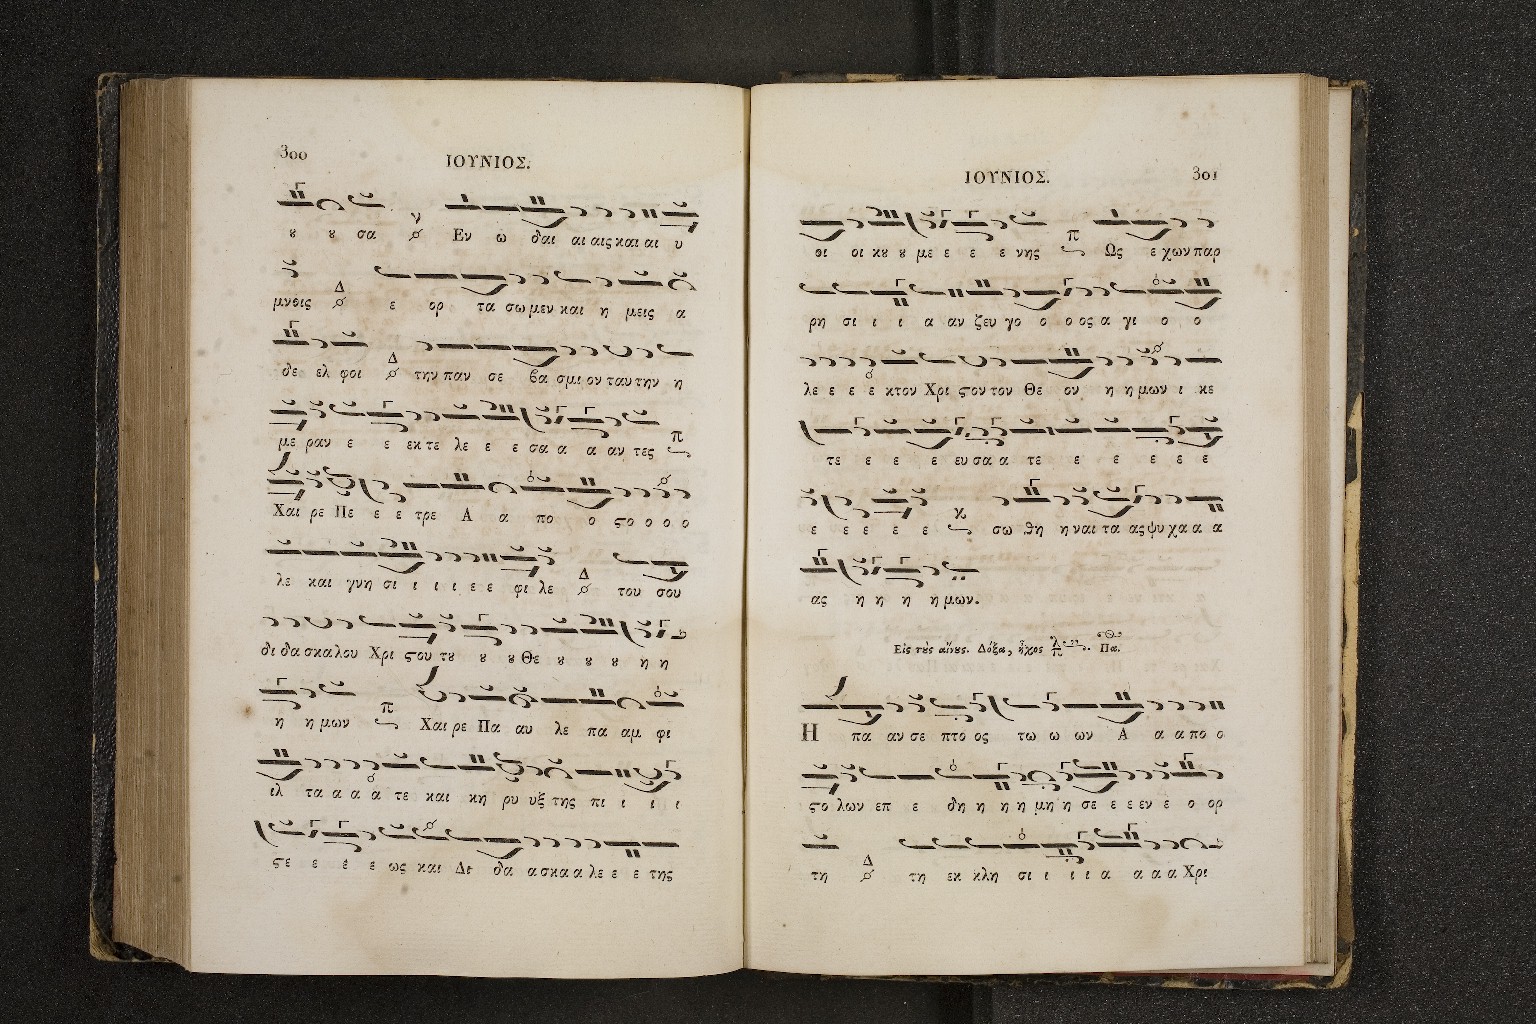 300
ΙΟΥΝΙΟΣ.
ȣ ȣ σα Εν ω δαι αι αις και αι υ
μνοις ε ορ τα σω μεν και η μεις α
δε ελ φοι την παν σε βα σμι ον ταυ την η
με ραν ε ε εκ τε λε ε ε σα α α αν τες
Χαι ρε Πε ε ε τρε Α α πο ο ϛο ο ο ο
λε και γνη σι ι ι ι ε ε φι λε του σου
δι δα σκα λου Χρι ϛου τȣ ȣ ȣ Θε ȣ ȣ ȣ η η
η η μων Χαι ρε Πα αυ λε πα αμ φι
ιλ τα α α α τε και κη ρυ υξ της πι ι ι ι
ϛε ε ε ε ως και Δι δα α σκα α λε ε ε της
ΙΟΥΝΙΟΣ.
301
οι οι κȣ ȣ με ε ε ε νης Ως ε χων παρ
ρη σι ι ι α αν ζευ γο ο ο ος α γι ο ο
λε ε ε ε κτον Χρι ϛον τον Θε ον η η μων ι κε
τε ε ε ε ευ σα α τε ε ε ε ε ε
ε ε ε ε ε σω θη η ναι τα ας ψυ χα α α
ας η η η η μων.
Εἰς τȣ̀ς αἴνȣς. Δόξα, ἦχος Πα.
Η πα αν σε πτο ος τω ω ων Α α α πο ο
ϛο λων επ ε δη η η η μη η σε ε ε εν ε ο ορ
τη τη εκ κλη σι ι ι ι α α α α Χρι